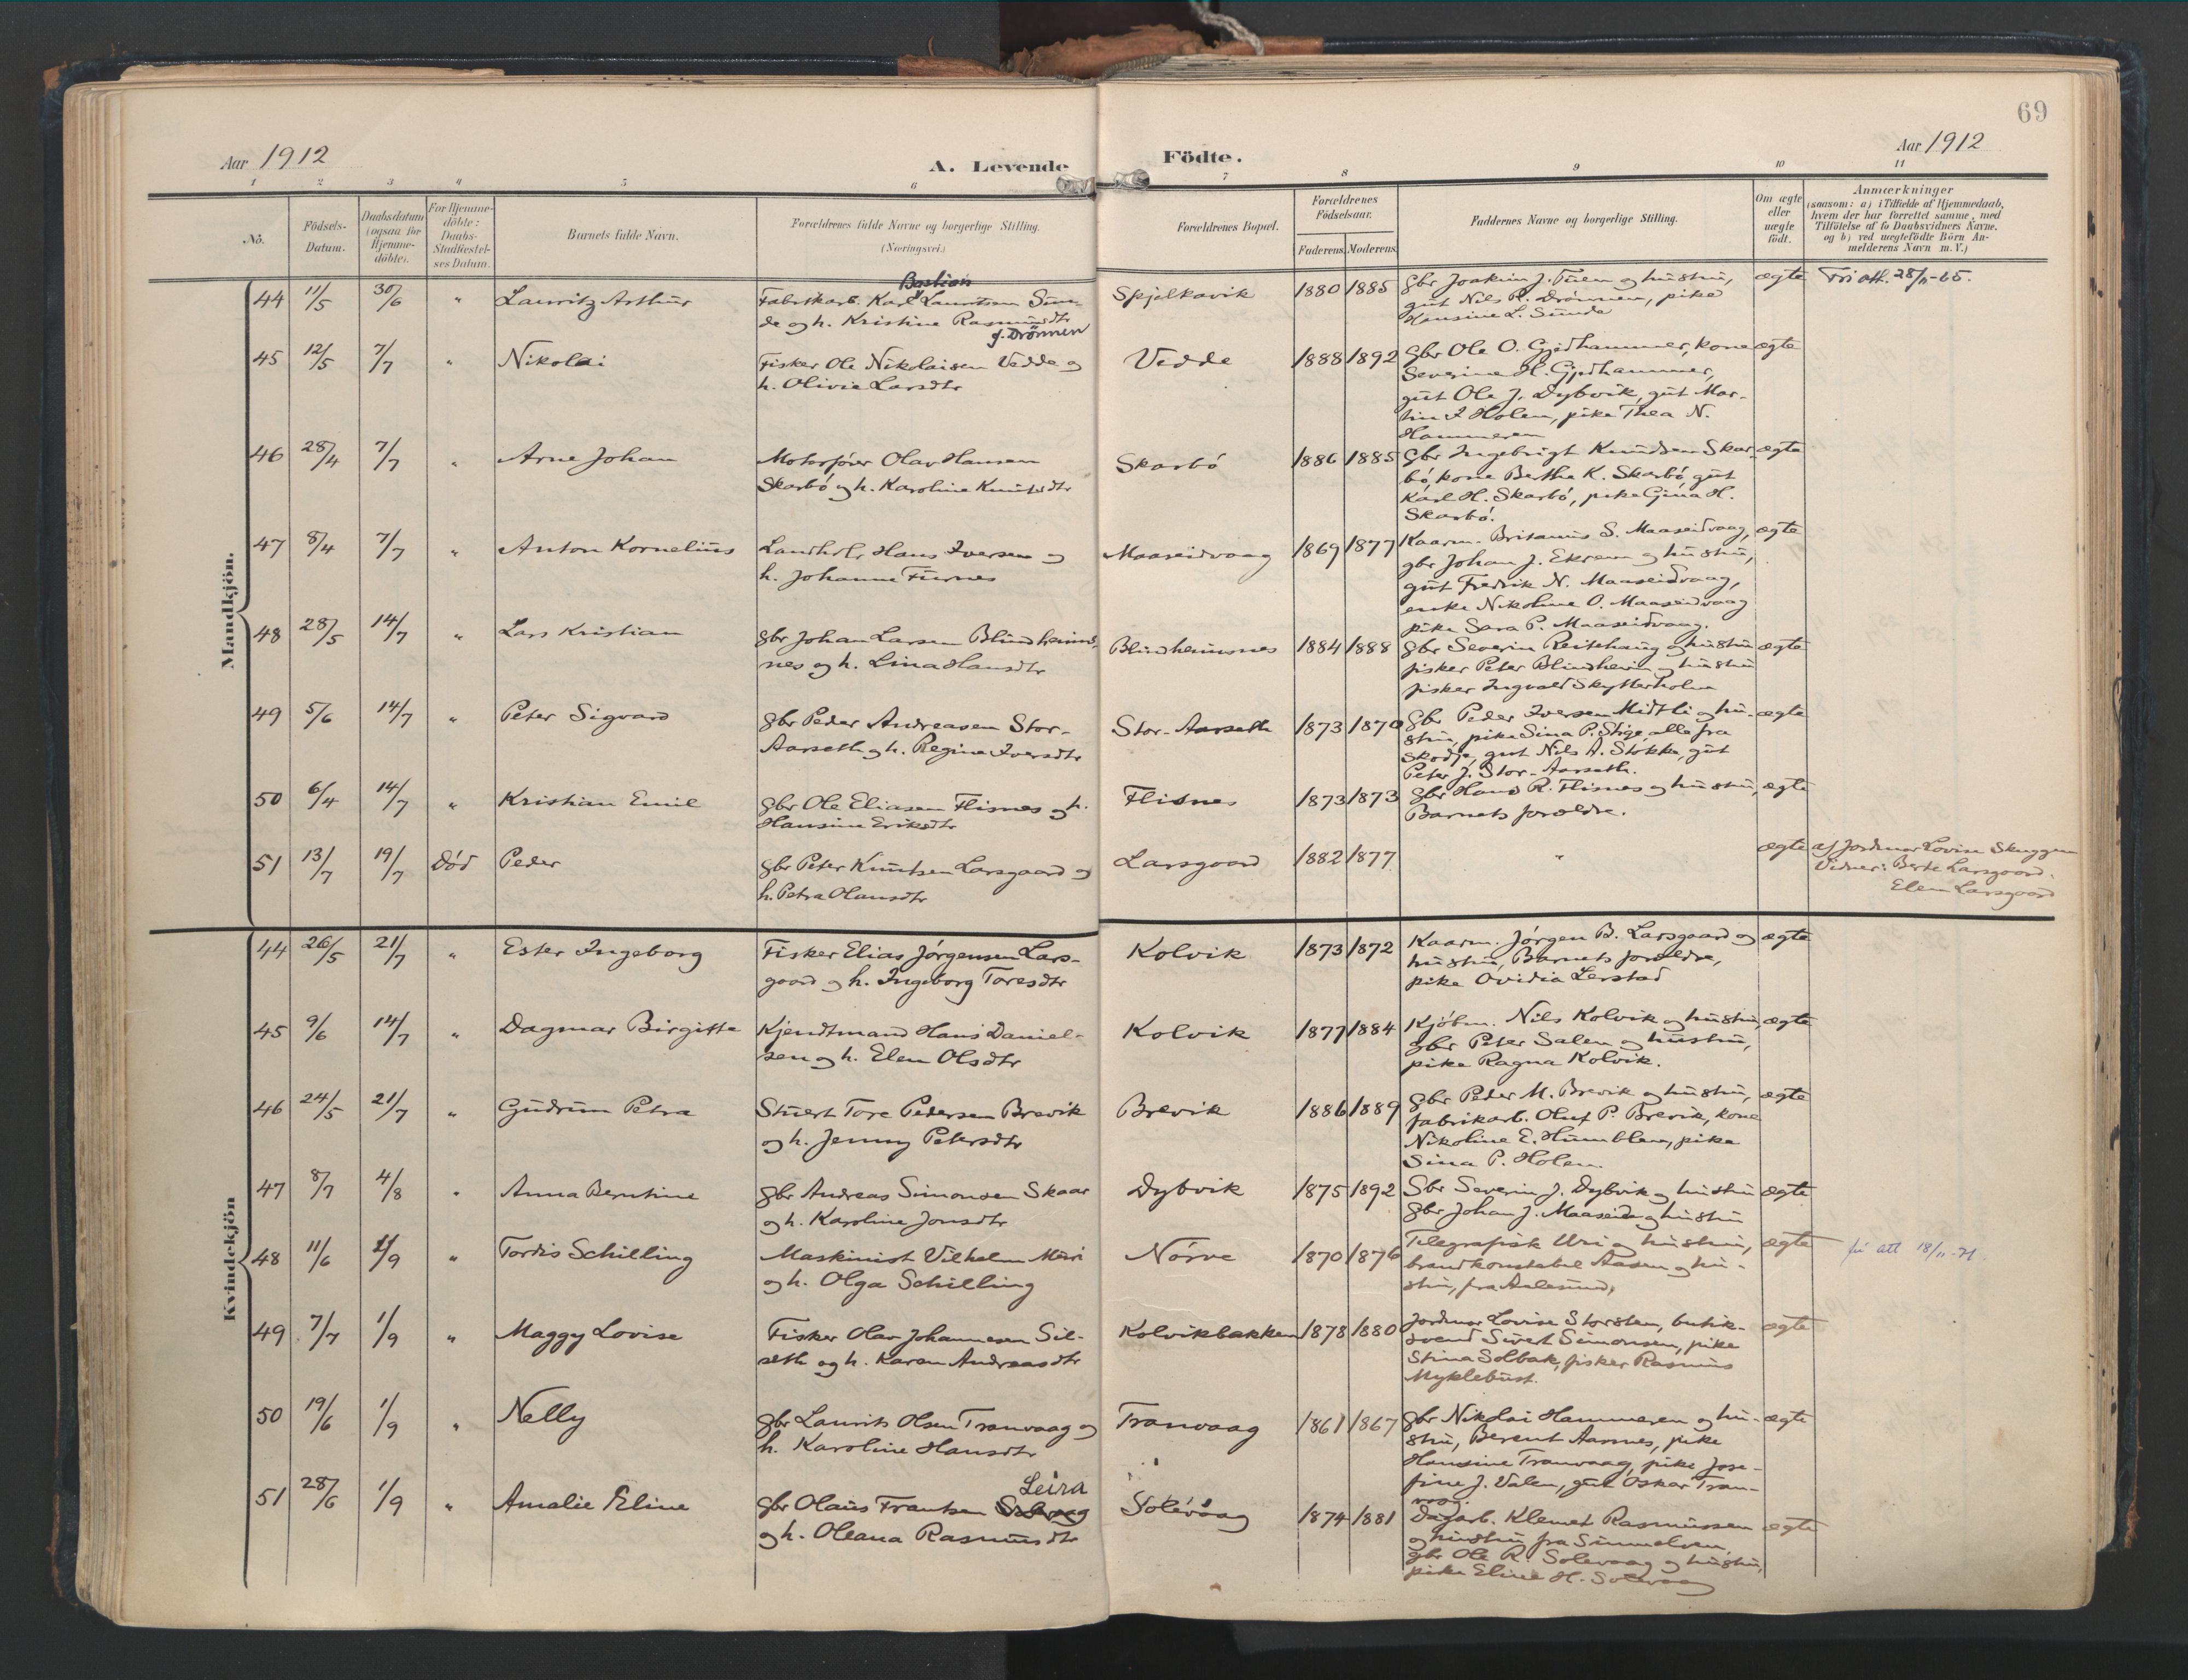 69
Aar 1912
A. Levende Födte.
Aar 1912
1 2 3 4 5 6 7 8 9 10 11
No.
Födsels-Datum.
Daabsdatum (ogsaa for Hjemme-döbte).
For Hjemme-döbte: Daabs-Stadfæstel-ses Datum.
Barnets fulde Navn.
Forældrenes fulde Navne og borgerlige Stilling.
(Næringsvei.)
Forældrenes Bopæl.
Forældrenes Födselsaar.
Faderens. Moderens.
Faddernes Navne og borgerlige Stilling.
Om ægte eller uægte födt.
Anmærkninger
(saasom: a) i Tilfælde af Hjemmedaab,
hvem der har forrettet samme, med
Tilföielse af to Daabsvidners Navne,
og b) ved uægtefödte Börn An-
melderens Navn m. V.)
Mandkjön.
44 11/5 30/6 " Lauritz Arthur
Bastian
Fabrikarb. Karl Lauritsen Sun-
de og h. Kristine Rasmusdtr
f. Drönnen
Spjelkavik 1880 1885
gbr Joakim J. Tuen og hustru,
gut Nils R. Drönnen, pike
Hansine L. Sunde
ægte Fri att. 28/11-65.
45 12/5 7/7 " Nikolai
Fisker Ole Nikolaisen Vedde og
h. Olivie Larsdtr
Vedde 1888 1892
gbr Ole O. Gjedhammer, kone
Severine H. Gjedhammer,
gut Ole J. Dybvik, gut Mar-
tin I Holen, pike Thea N.
Hammeren
ægte
46 28/4 7/7 " Arne Johan
Motorförer Olav Hansen
Skarbö og h. Karoline Knutsdtr
Skarbö 1886 1885
gbr Ingebrigt Knudsen Skar-
bö, kone Berthe K. Skarbö, gut
Karl H. Skarbö, pike Gina H.
Skarbö.
ægte
47 8/4 7/7 " Anton Kornelius
Landh. Hans Iversen og
h. Johanne Furnes
Maaseidvaag 1869 1877
Kaarm. Britanus S. Maaseidvaag,
gbr Johan J. Ekrem og hustru,
gut Fredrik N. Maaseidvaag,
enke Nikoline O. Maaseidvaag
pike Sara P. Maaseidvaag.
ægte
48 28/5 14/7 " Lars Kristian
gbr Johan Larsen Blindheims-
nes og h. Lina Hansdtr
Blindheimsnes 1884 1888
gbr Severin Reitehaug og hustru
fisker Peter Blindheim og hustru
fisker Ingvald Skytterholm
ægte
49 5/6 14/7 " Peter Sigvard
gbr Peder Andreasen Stor-
Aarseth og h. Regine Iversdtr
Stor-Aarseth 1873 1870
gbr Peder Iversen Midtli og hu-
stru, pike Sina P. Stige, alle fra
Skodje, gut Nils A. Stokke, gut
Peter J. Stor-Aarseth.
ægte
50 6/4 14/7 " Kristian Emil
gbr Ole Eliasen Flisnes og h.
Hansine Eriksdtr
Flisnes 1873 1873
gbr Hans R. Flisnes og hustru,
Barnets foreldre.
ægte
51 13/7 19/7 Död Peder
gbr Peter Knutsen Larsgaard og
h. Petra Olausdtr
Larsgaard 1882 1877
"
ægte
af Jordmor Lovise Skuggen
Vidner: Berte Larsgaard.
Elen Larsgaard
Kvindekjön
44 26/5 21/7 " Ester Ingeborg
Fisker Elias Jørgensen Lars-
gaard og h. Ingeborg Toresdtr
Kolvik 1873 1872
Kaarm. Jørgen B. Larsgaard og
hustru, Barnets foreldre,
pike Ovidia Lerstad
ægte
45 9/6 14/7 " Dagmar Birgitte
Kjendtmand Hans Daniel-
sen og h. Elen Olsdtr
Kolvik 1877 1884
Kjöbm. Nils Kolvik og hustru,
gbr Peter Salen og hustru,
pike Ragna Kolvik.
ægte
46 24/5 21/7 " Gudrun Petra
Stuert Tore Pedersen Brevik
og h. Jenny Petersdtr
Brevik 1886 1889
gbr Peder M. Brevik og hustru,
fabrikarb. Oluf P. Brevik, kone
Nikoline E. Humblen, pike
Sina P. Holen.
ægte
47 8/7 4/8 " Anna Berntine
gbr Andreas Simonsen Skaar
og h. Karoline Jonsdtr
Dybvik 1875 1892
Gbr Severin J. Dybvik og hustru
gbr Johan J. Maaseide og hustru
ægte
48 11/6 1/9 " Tordis Schilling
Maskinist Vilhelm
og h. Olga Schilling
Nörve 1870 1876
Telegrafist Uri og hustru,
brandkonstabel Aasen og hu-
stru, fra Aalesund,
ægte fri att 18/11-71.
49 7/7 1/9 " Maggy Lovise
Fisker Olav Johannesen Sil-
seth og h. Karen Andreasdtr
Kolvikbakken 1878 1880
Jordmor Lovise Storsten, butik-
svend Sivert Simonsen, pike
Stina Solbak, fisker Rasmus
Myklebust.
ægte
50 19/6 1/9 " Nelly
gbr Laurits Olsen Tranvaag og
h. Karoline Hansdtr
Tranvaag 1861 1867
gbr Nikolai Hammeren og hu-
stru, Berent Aarnes, pike
Hansine Tranvaag, pike Jose-
fine J. Valen, gut Oskar Tran-
vaag.
ægte
51 28/6 1/9 " Amalie Eline
Leira
gbr Olaus Frantsen
og h. Oleana Rasmusdtr
Solevaag 1874 1881
Dagarb. Klemet Rasmussen
og hustru fra
gbr Ole R. Solevaag og hustru,
pike Eline H. Solevaag
ægte